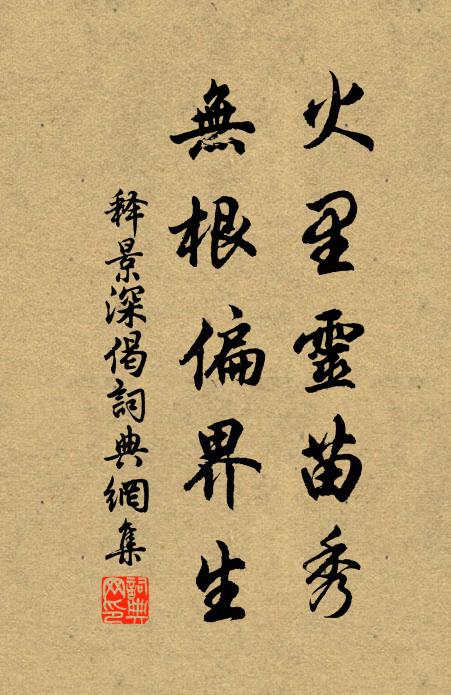 火里靈苗秀
無根偏界生
释景深偈詞典網集
詞典網印